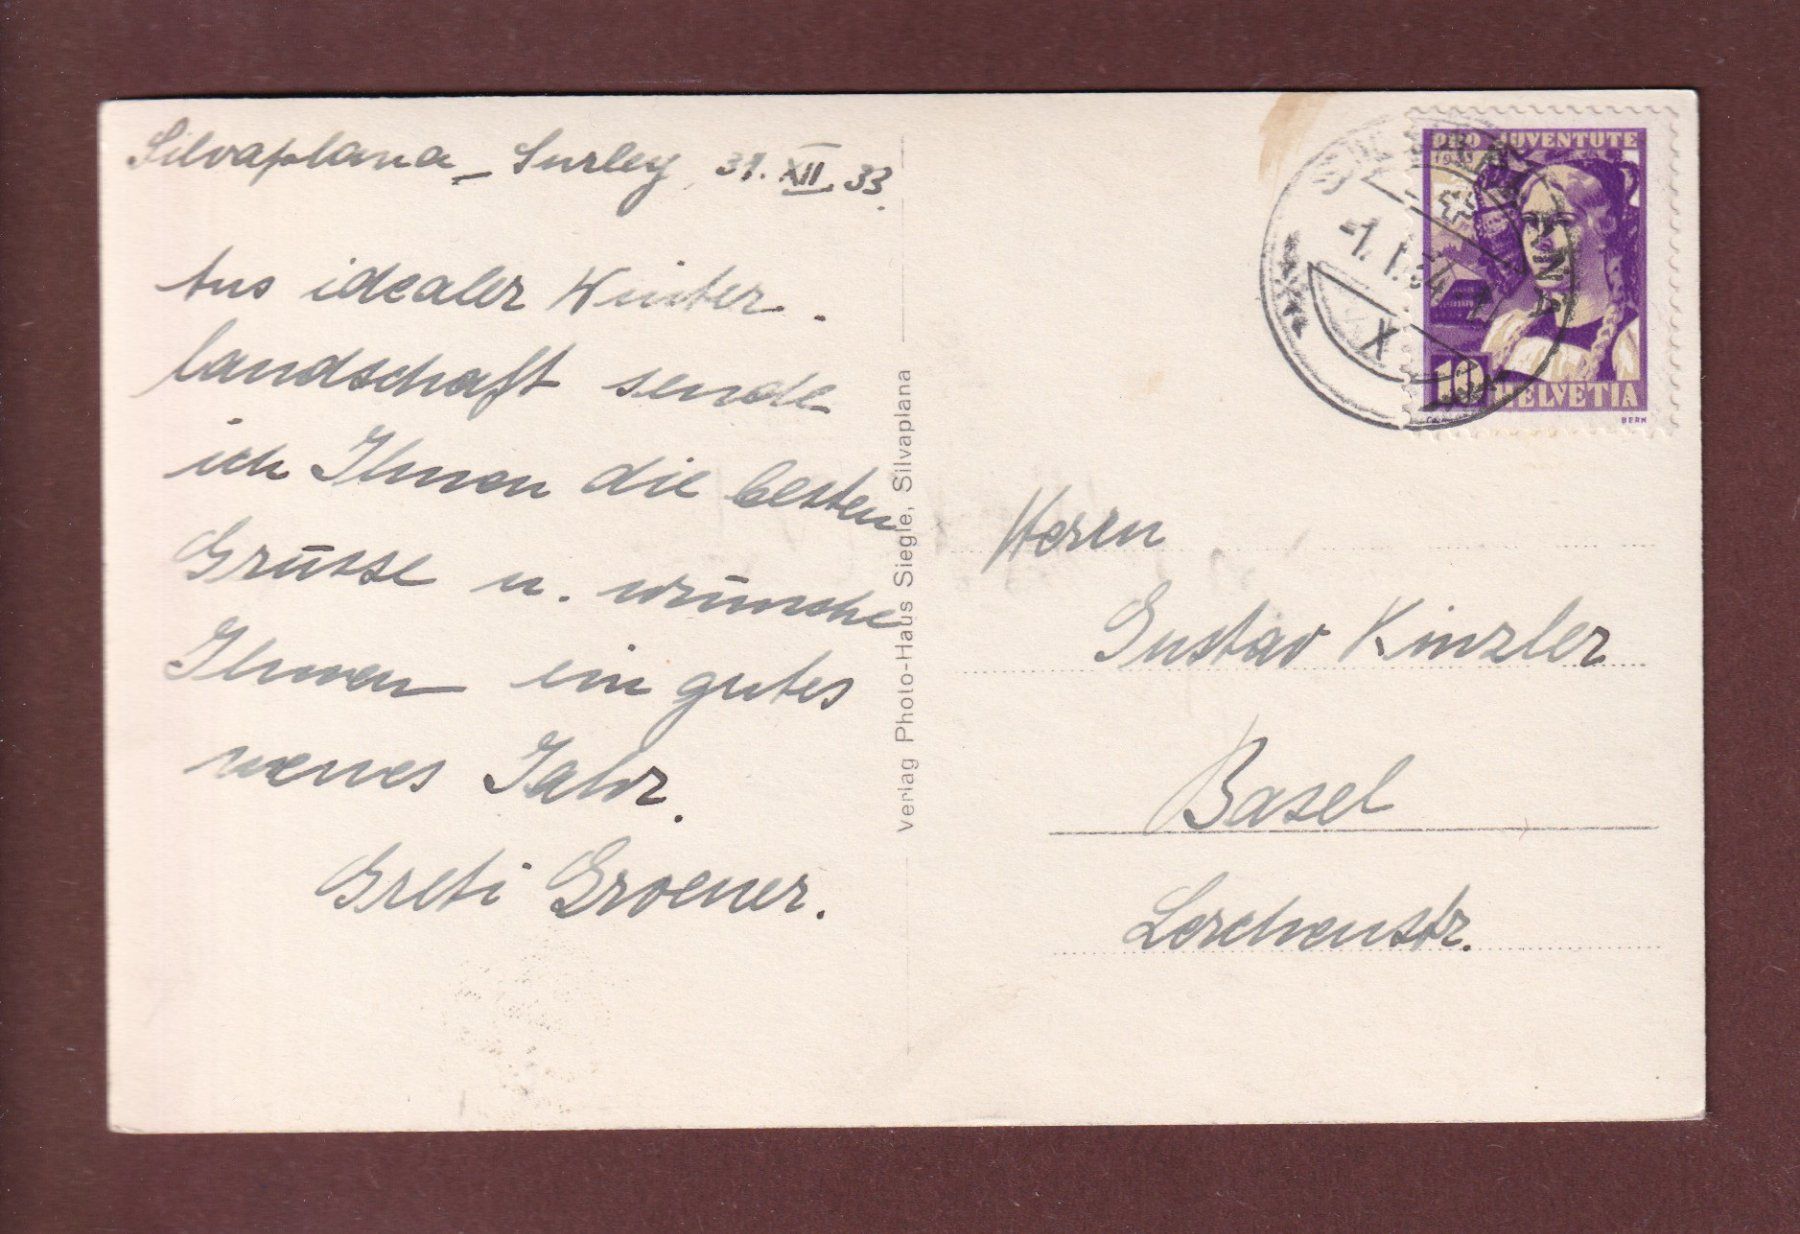 Silvaplana - Surley, 31. XII. 33.
Aus idealer Winter-
landschaft sende
ich Ihnen die besten
Grüsse u. wünsche
Ihnen ein gutes
neues Jahr.
Greti Groener.
Verlag Photo-Haus Siegle, Silvaplana
PRO JUVENTUTE
1933
SILVAPLANA
-1. I. 34
X
10
HELVETIA
BERN
Herrn
Gustav Kinzler
Basel
Lerchenstr.